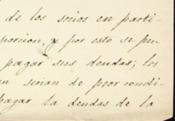 de los socios en parti-
porcion, y por esto se pu
pagar sus deudas; los
an serian de peor condi-
pagar la deudas de la